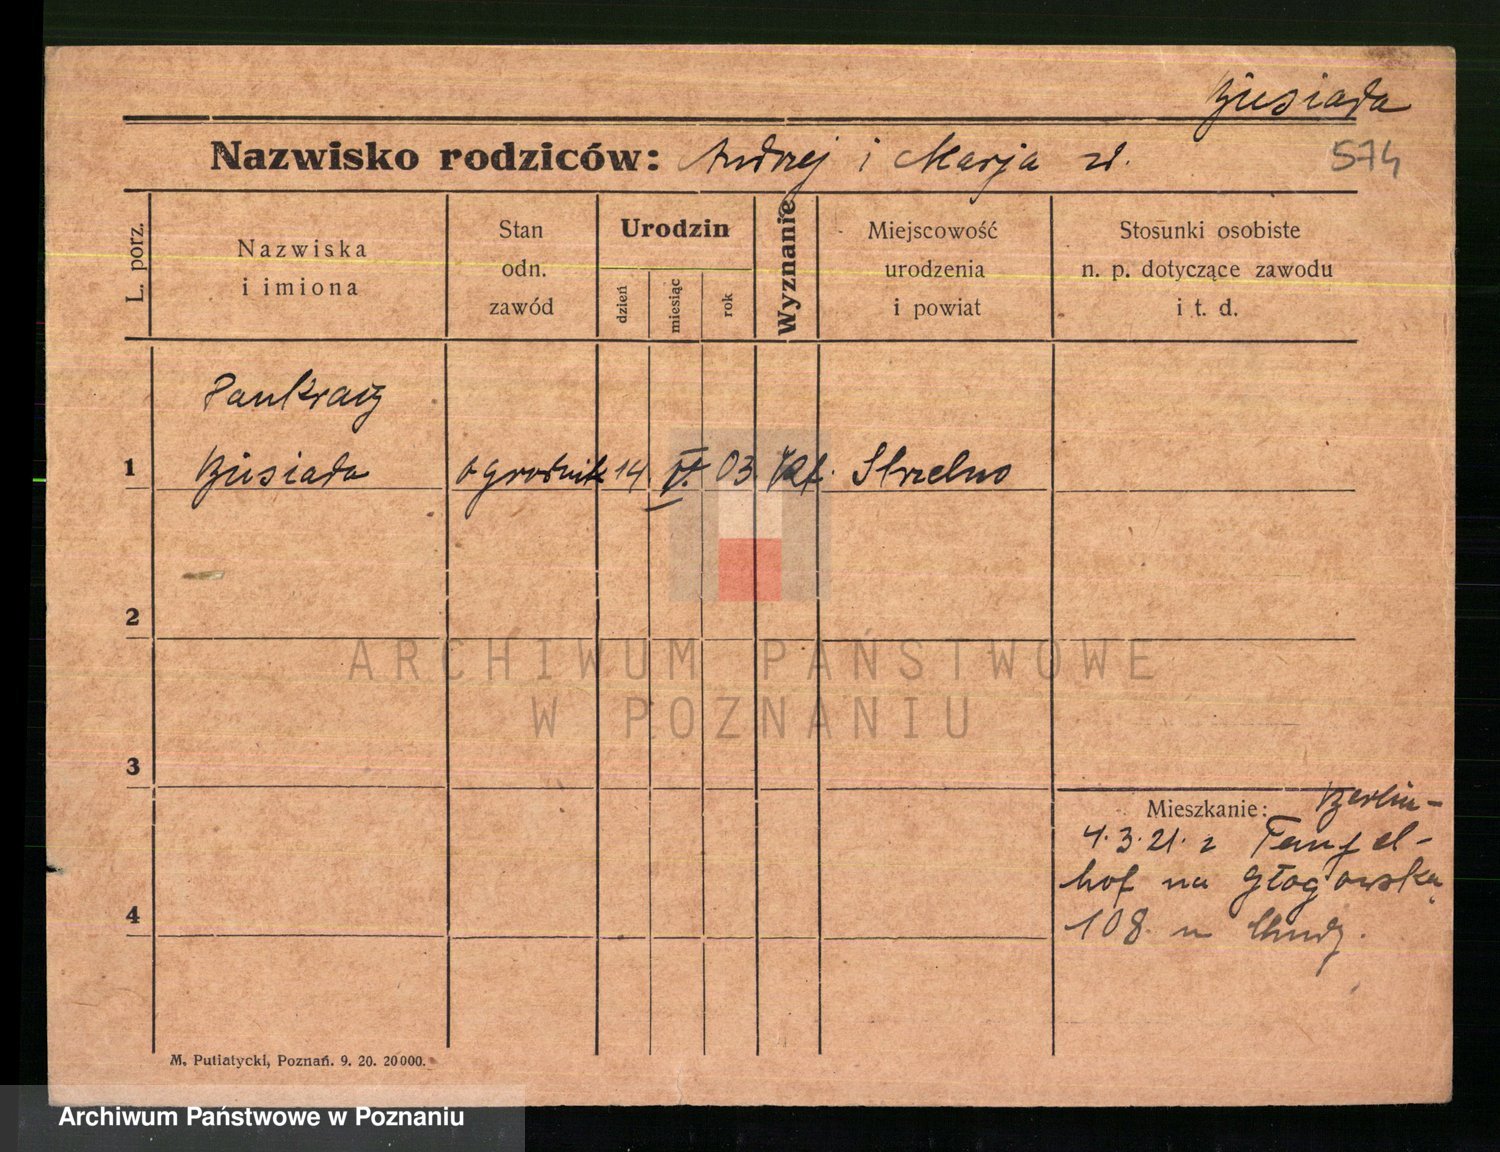 Biesiada
Nazwisko rodziców: Andrzej i Marja
574
L. porz.
Nazwiska
i imiona
Stan
odn.
zawód
Urodzin
dzień
miesiąc
rok
Wyznanie
Miejscowość
urodzenia
i powiat
Stosunki osobiste
n. p. dotyczące zawodu
i t. d.
Pankracy
1 Biesiada ogrodnik 14. 03. Kat. Strzelno
2
ARCHIWUM PAŃSTWOWE
W POZNANIU
3
Mieszkanie: Berlin-
4.3.21. z Tempel-
hof na Głogowską
4
108. u
M. Putiatycki, Poznań. 9. 20. 20000.
Archiwum Państwowe w Poznaniu